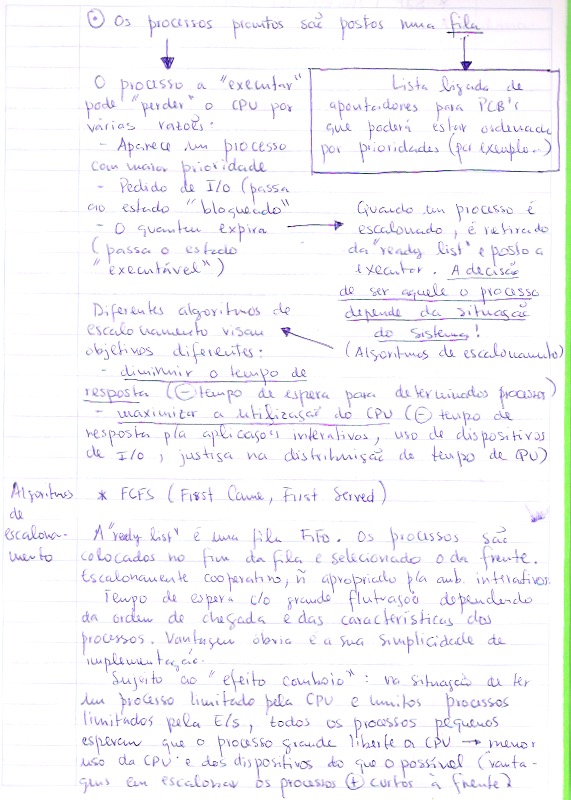 ⊙ Os processos prontos são postos numa fila
O processo a "executar"
pode "perder" o CPU por
várias razões:
- Aparece um processo
com maior prioridade
- Pedido de I/O (passa
ao estado "bloqueado"
- O quantum expira
(passa o estado
"executável")
Lista ligada de
apontadores para PCB's
que poderá estar ordenada
por prioridades (por exemplo...)
Quando um processo é
escalonado, é retirado
da "ready list" e posto a
executar. A decisão
de ser aquele o processo
depende da situação
do sistema!
(Algoritmos de escalonamento)
Diferentes algoritmos de
escalonamento visam
objetivos diferentes:
- diminuir o tempo de
resposta (⊖ tempo de espera para determinados processos)
- maximizar a utilização do CPU (⊖ tempo de
resposta p/a aplicações interativas, uso de dispositivos
de I/O, justiça na distribuição de tempo de CPU)
Algoritmos
de
escalona-
mento
* FCFS (First Came, First Served)
A "ready list" é uma fila FIFO. Os processos são
colocados no fim da fila e selecionado o da frente.
Escalonamento cooperativo, ñ apropriado p/a amb. interativos.
Tempo de espera c/o grande flutuação dependendo
da ordem de chegada e das características dos
processos. Vantagem óbvia é a sua simplicidade de
implementação.
Sujeito ao "efeito comboio": na situação de ter
um processo limitado pela CPU e muitos processos
limitados pela E/S, todos os processos pequenos
esperam que o processo grande liberte a CPU → menor
uso da CPU e dos dispositivos do que o possível (vanta-
gens em escalonar os processos ⊕ curtos à frente?